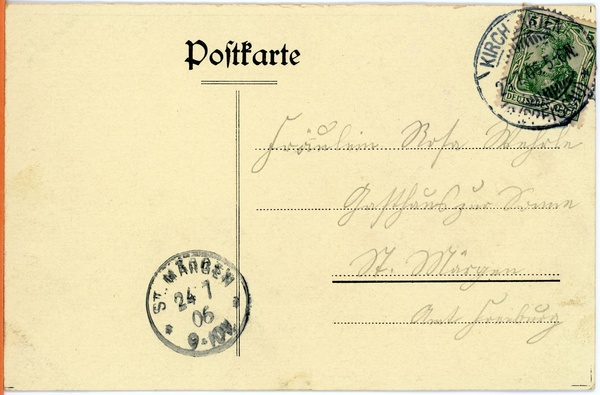 Postkarte
KIRCH
DEUTSCHES
Fräulein Rosa Wehrle
Gasthaus zur Sonne
St. Märgen
Amt Freiburg
ST. MÄRGEN
24 7
06
9-10V.